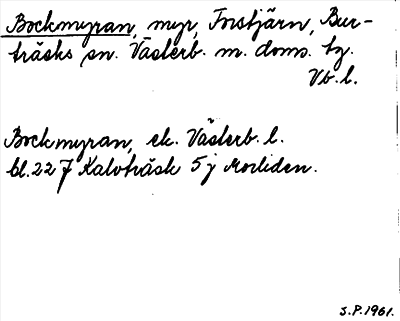 Bockmyran, myr, Forstjärn, Bur-
träsks sn. Västerb. m. doms. bg.
Vb. l.
Bockmyran, ek. Västerb. l.
bl. 22 J Kalvträsk 5 j Morliden.
S.P. 1961.